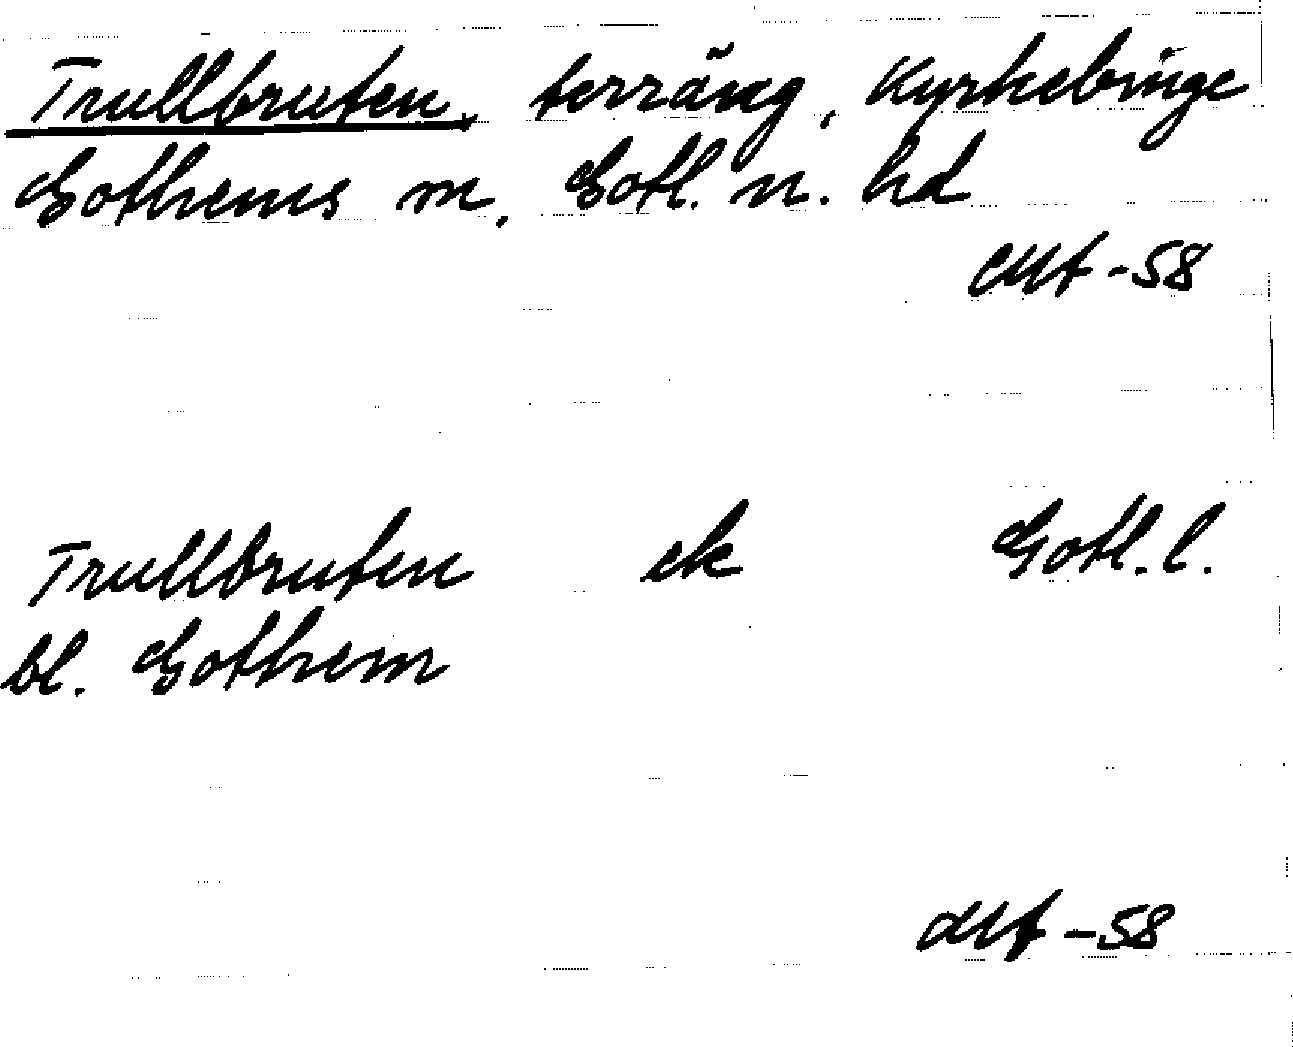 Trullbruten, terräng, Kyrkebinge
Gothems m, Gotl. n. hd
-58
Trullbruten ek Gotl. l.
bl. Gothem
-58